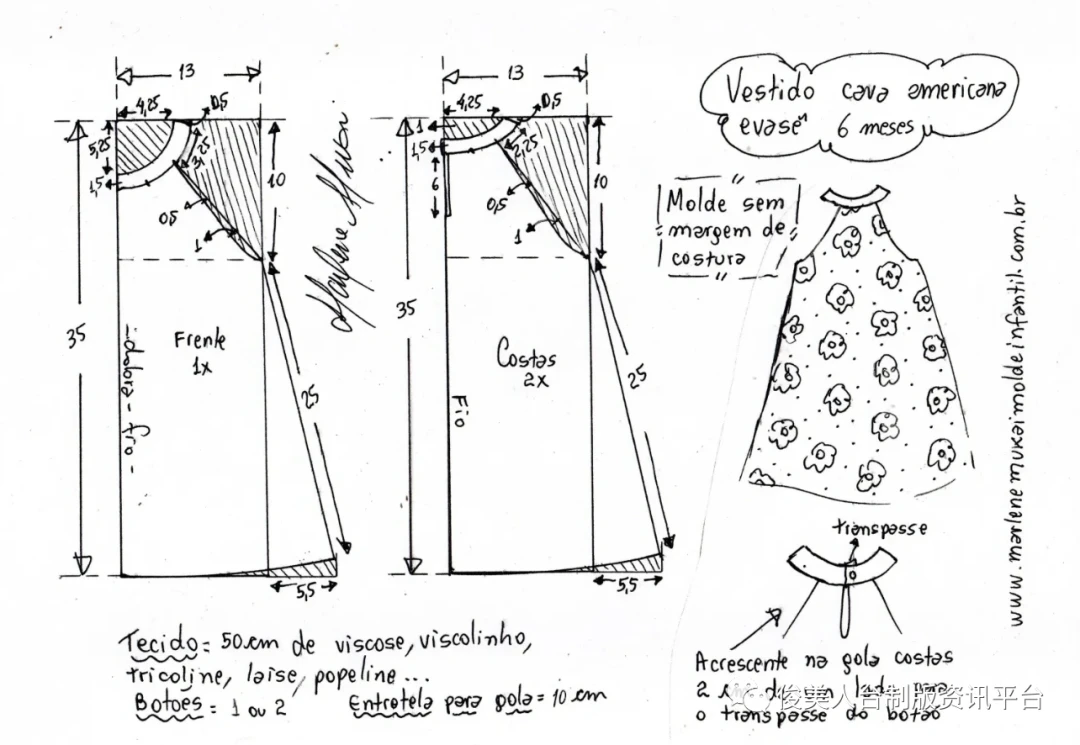 Vestido cava americana
evasê 6 meses
Molde sem
margem de
costura
www.marlenemukaimoldeinfantil.com.br
13
4,25
0,5
5,25
1,5
3,25
10
0,5
1
35
Frente
1x
dobra - fio
25
5,5
13
4,25
0,5
1
1,5
2,25
6
10
0,5
1
35
Costas
2x
Fio
25
5,5
transpasse
Tecido = 50 cm de viscose, viscolinho,
tricoline, laise, popeline...
Botões = 1 ou 2
Entretela para gola = 10 cm
Acrescente na gola costas
2 cm de um lado para
o transpasse do botão
俊美人台制版资讯平台